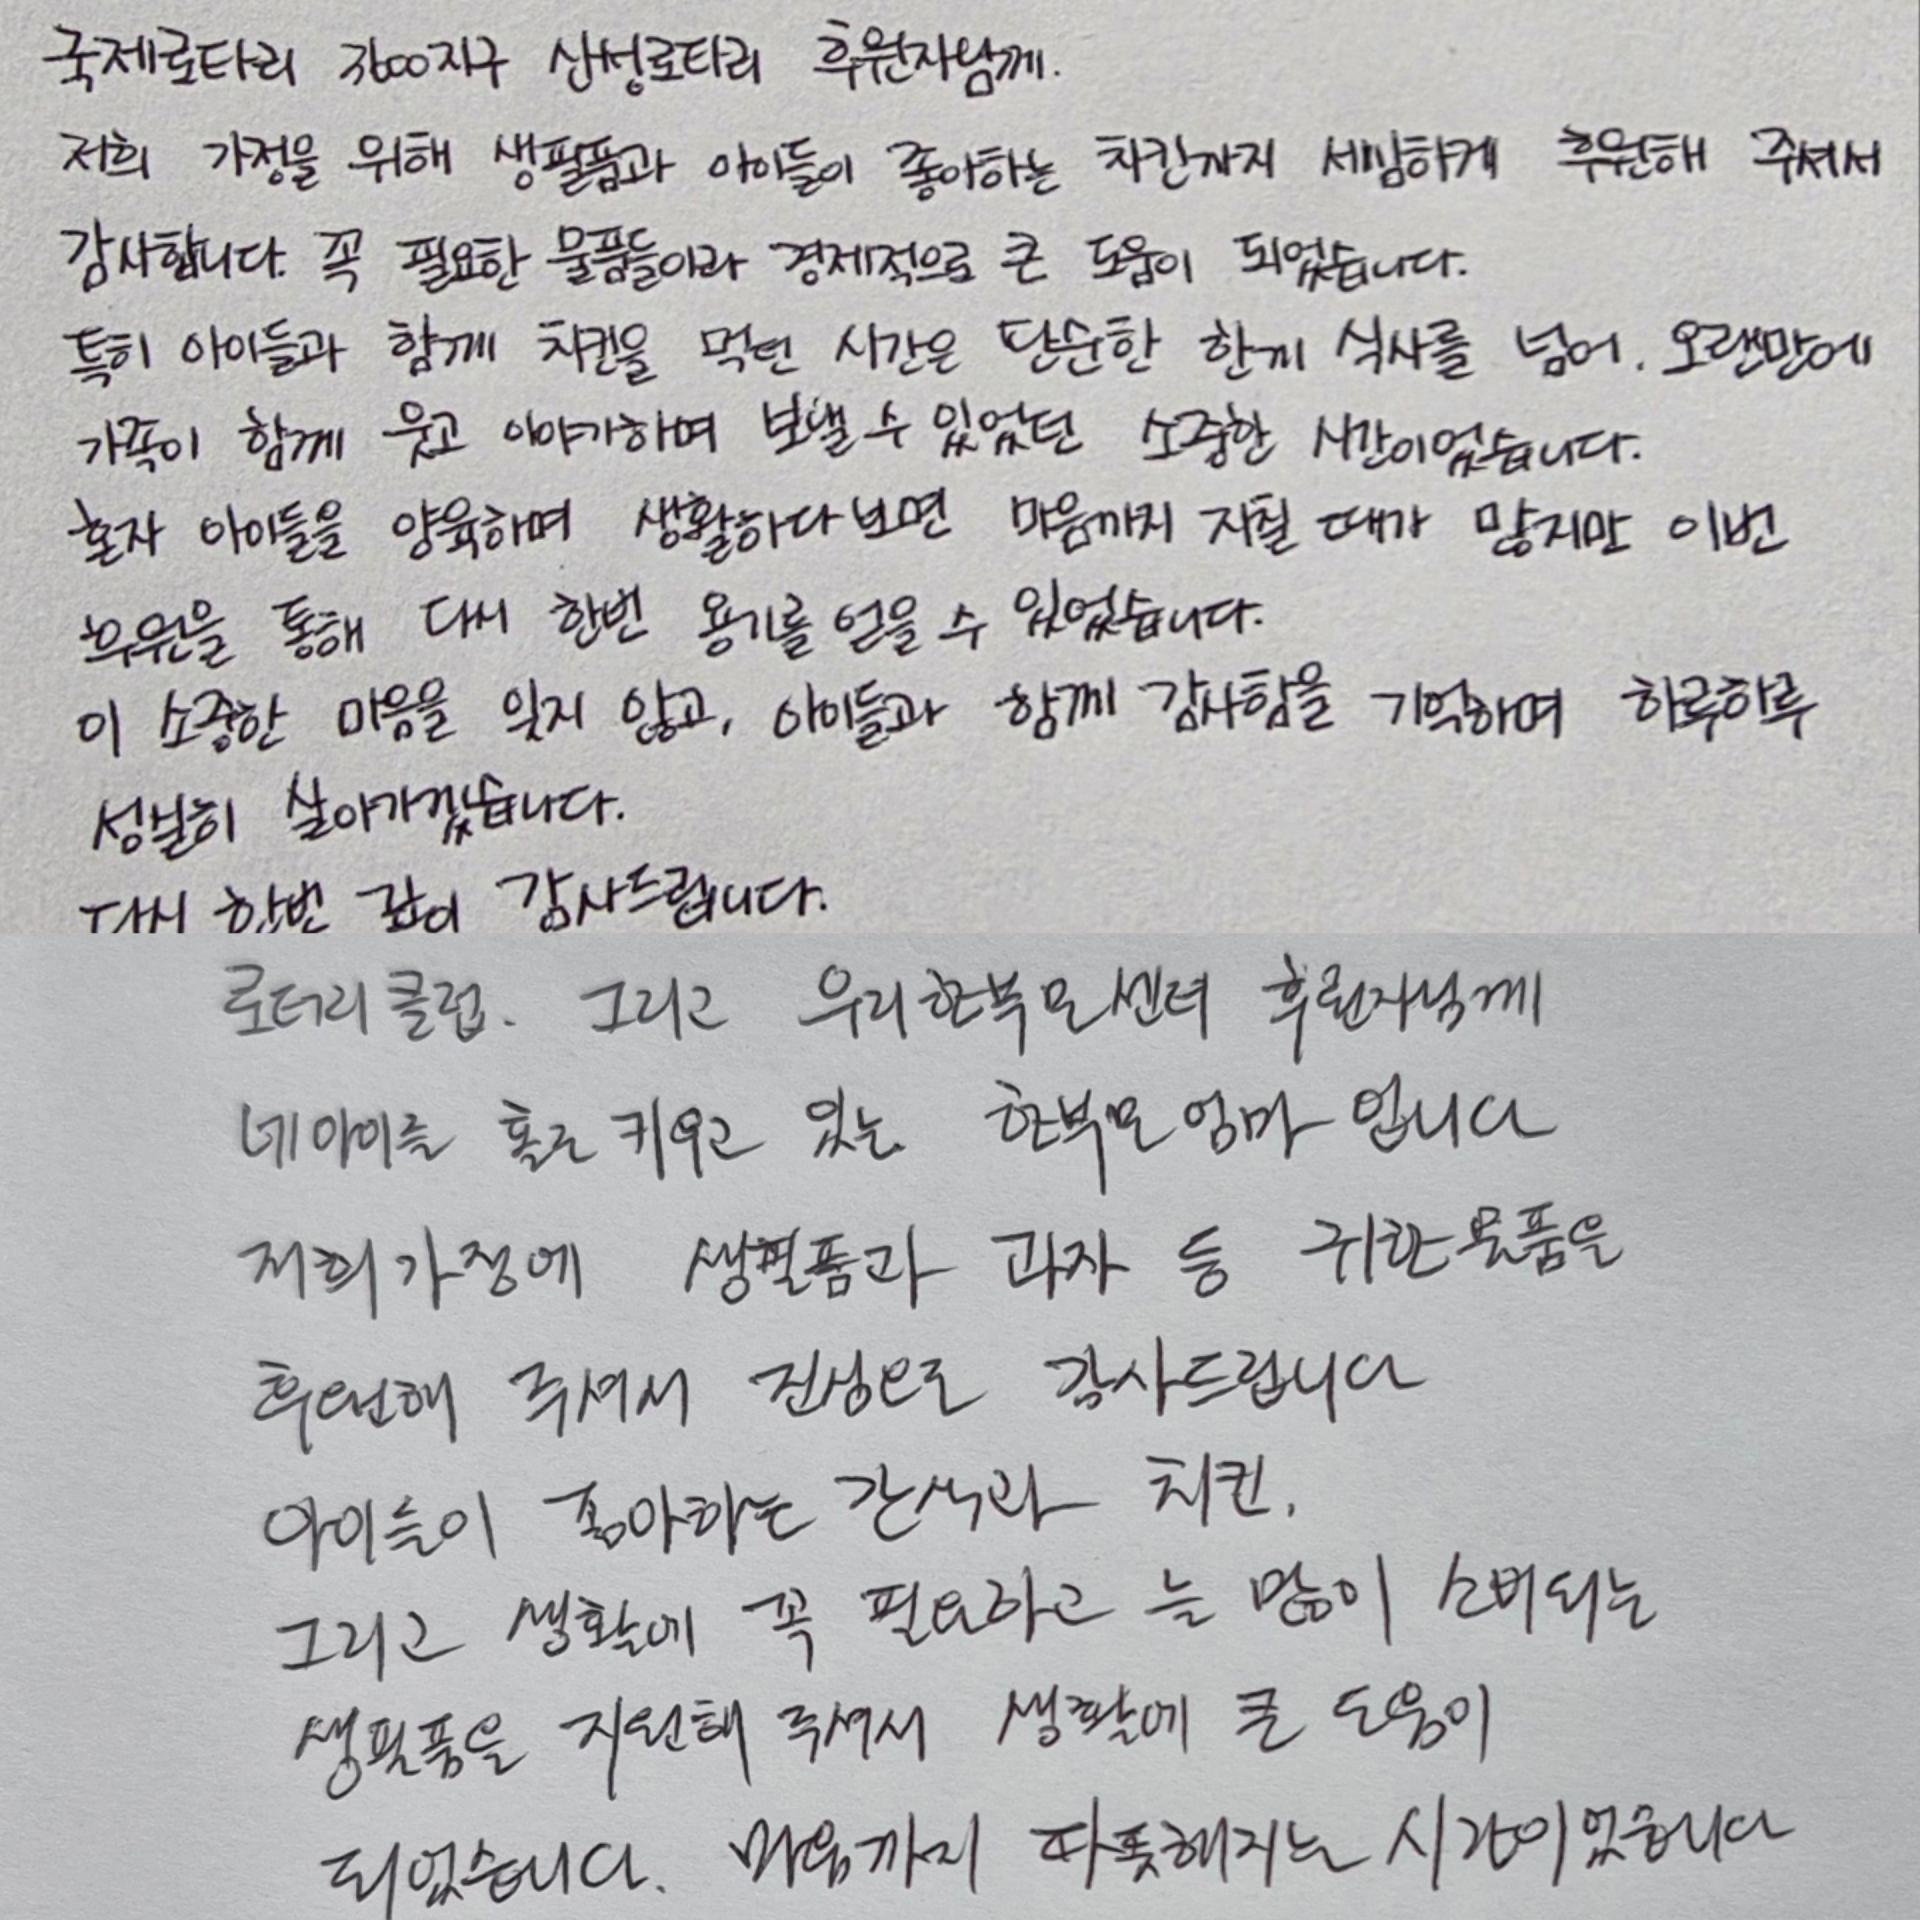 국제로타리 3600지구 산성로타리 후원자님께.
저희 가정을 위해 생필품과 아이들이 좋아하는 치킨까지 세밀하게 후원해 주셔서
감사합니다. 꼭 필요한 물품들이라 경제적으로 큰 도움이 되었습니다.
특히 아이들과 함께 치킨을 먹던 시간은 단순한 한끼 식사를 넘어, 오랜만에
가족이 함께 웃고 이야기하며 보낼 수 있었던 소중한 시간이었습니다.
혼자 아이들을 양육하며 생활하다보면 마음까지 지칠 때가 많지만 이번
후원을 통해 다시 한번 용기를 얻을 수 있었습니다.
이 소중한 마음을 잊지 않고, 아이들과 함께 감사함을 기억하며 하루하루
성실히 살아가겠습니다.
다시 한번 깊이 감사드립니다.
로터리클럽. 그리고 우리한부모센터 후원자님께
네아이를 홀로 키우고 있는 한부모 엄마 입니다
저희 가정에 생필품과 과자 등 귀한 물품을
후원해 주셔서 진심으로 감사드립니다
아이들이 좋아하는 간식과 치킨,
그리고 생활에 꼭 필요하고 늘 많이 소비되는
생필품을 지원해 주셔서 생활에 큰 도움이
되었습니다. 마음까지 따뜻해지는 시간이었습니다